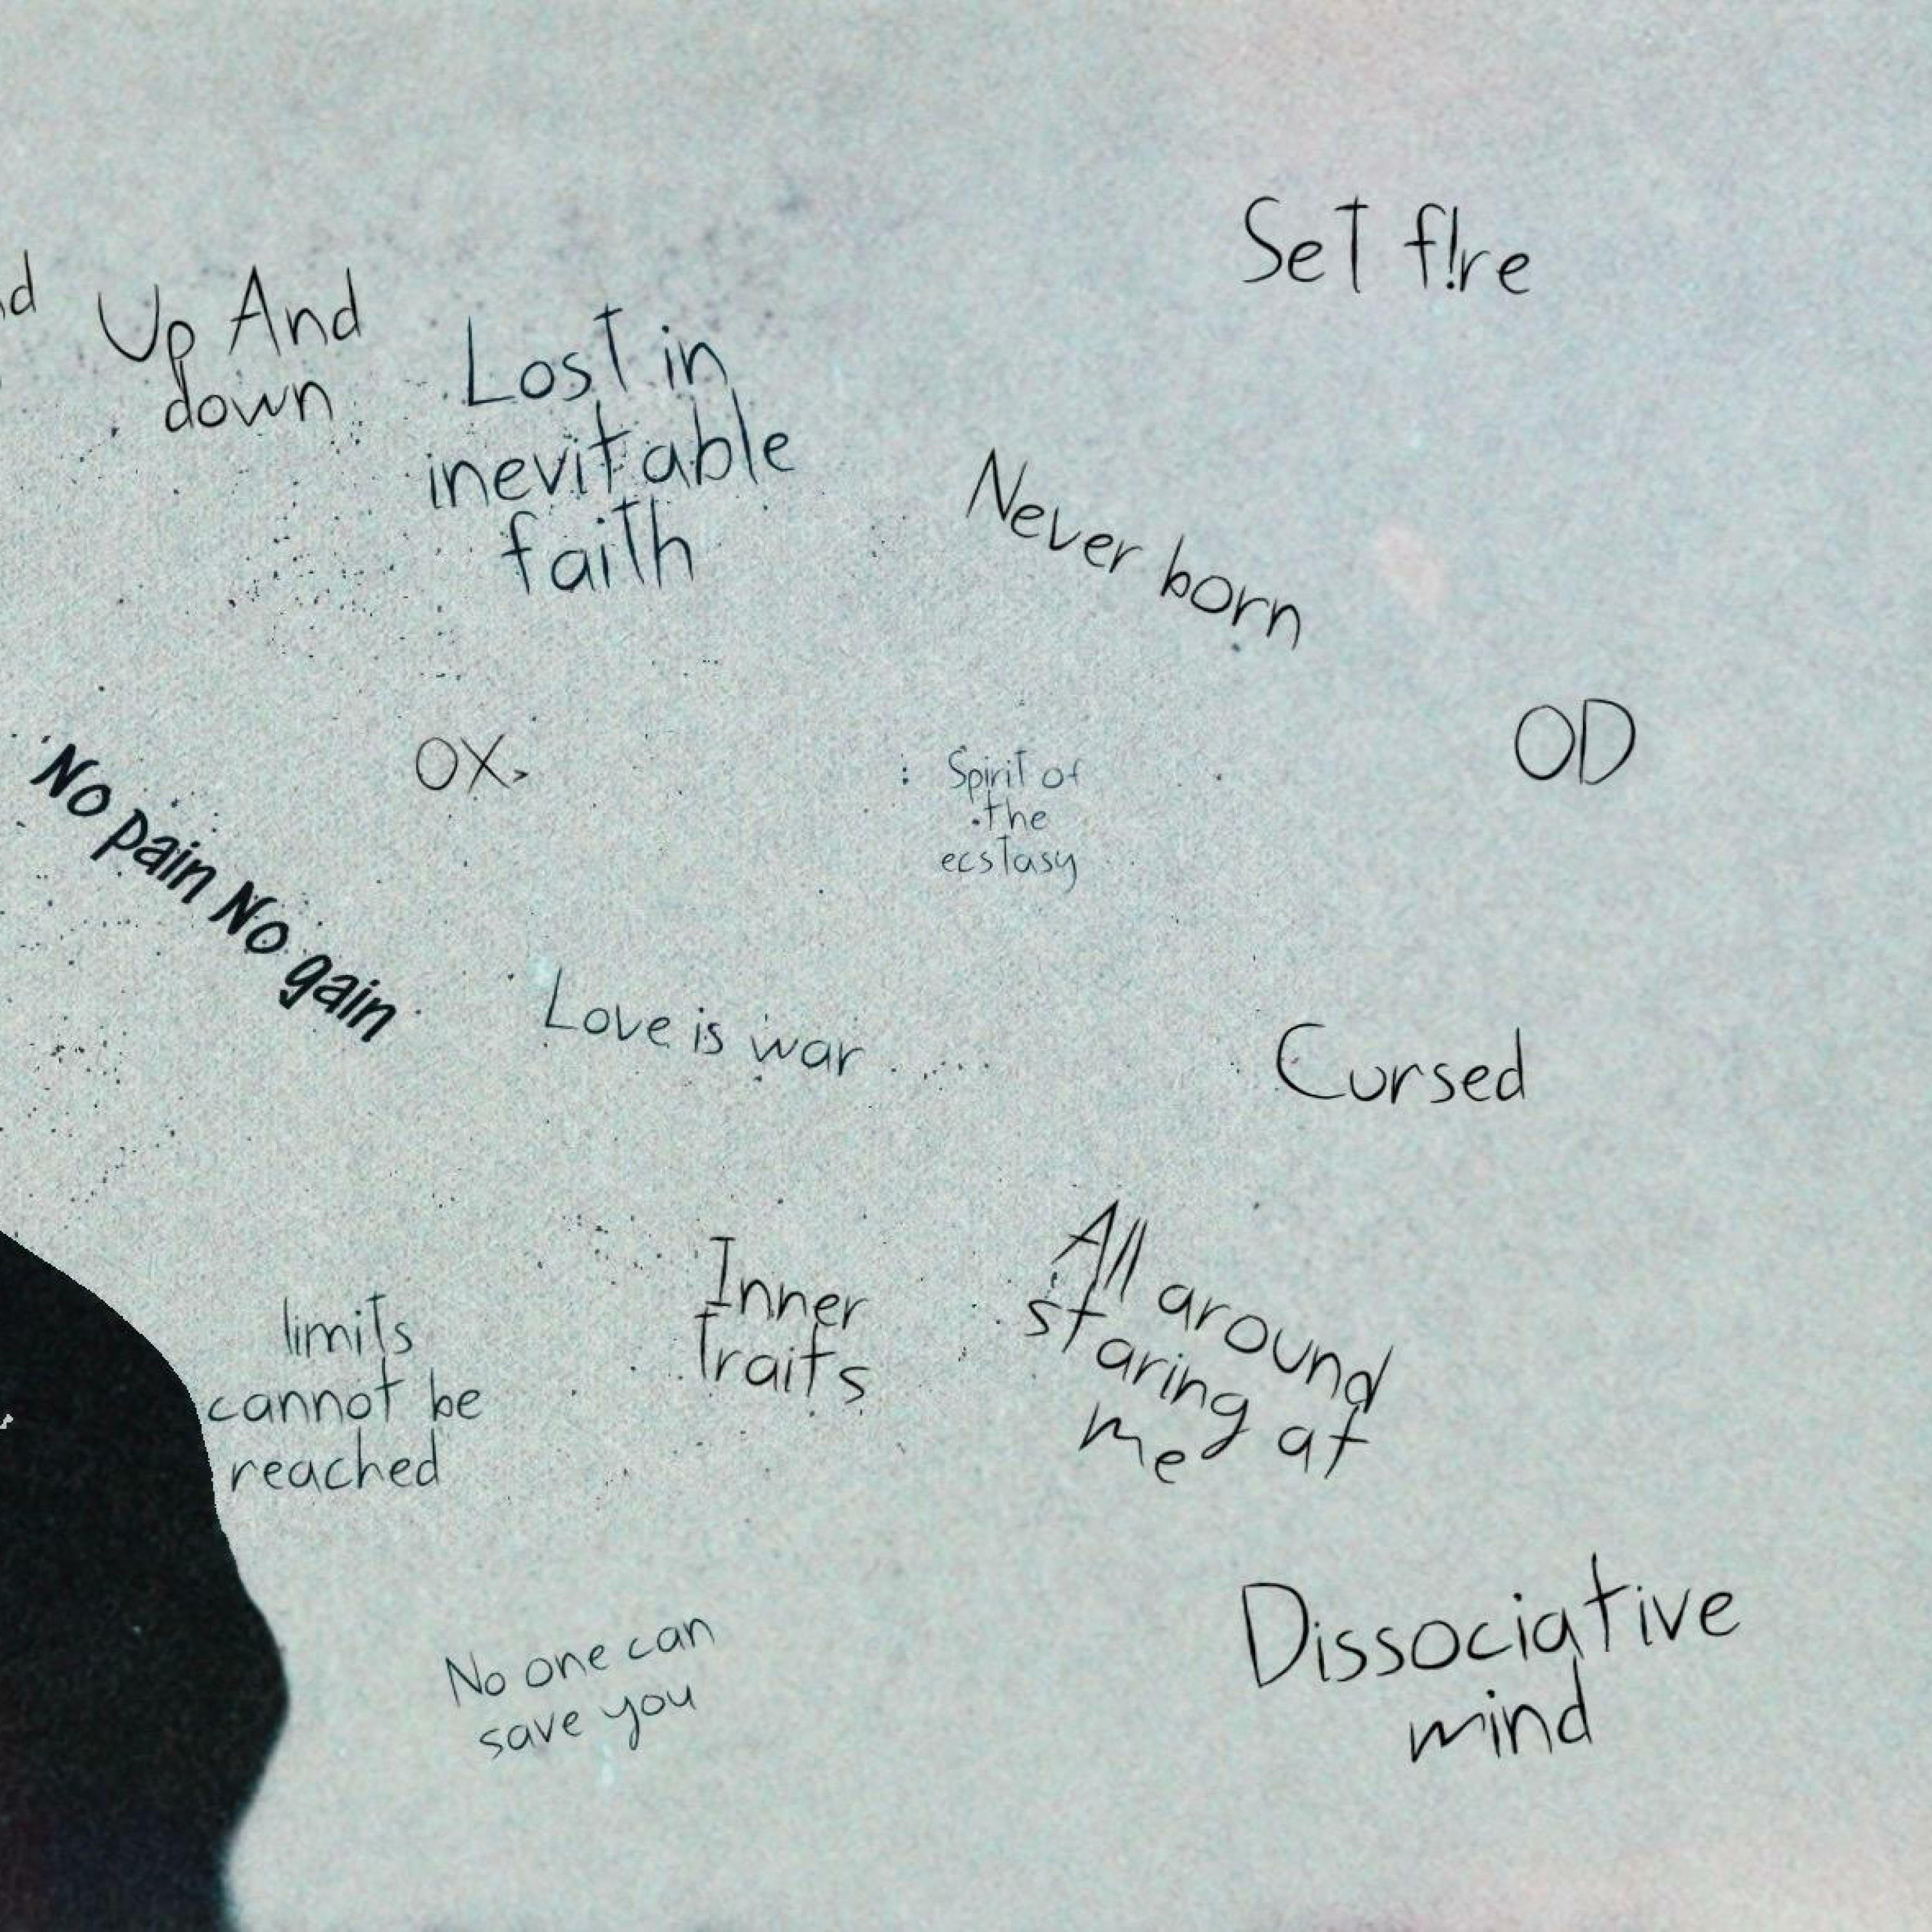 Set f!re
Up And
down
Lost in
inevitable
faith
Never born
OX
OD
Spirit of
the
ecstasy
No pain No gain
Love is war
Cursed
limits
cannot be
reached
Inner
Traits
All around
staring at
me
No one can
save you
Dissociative
mind